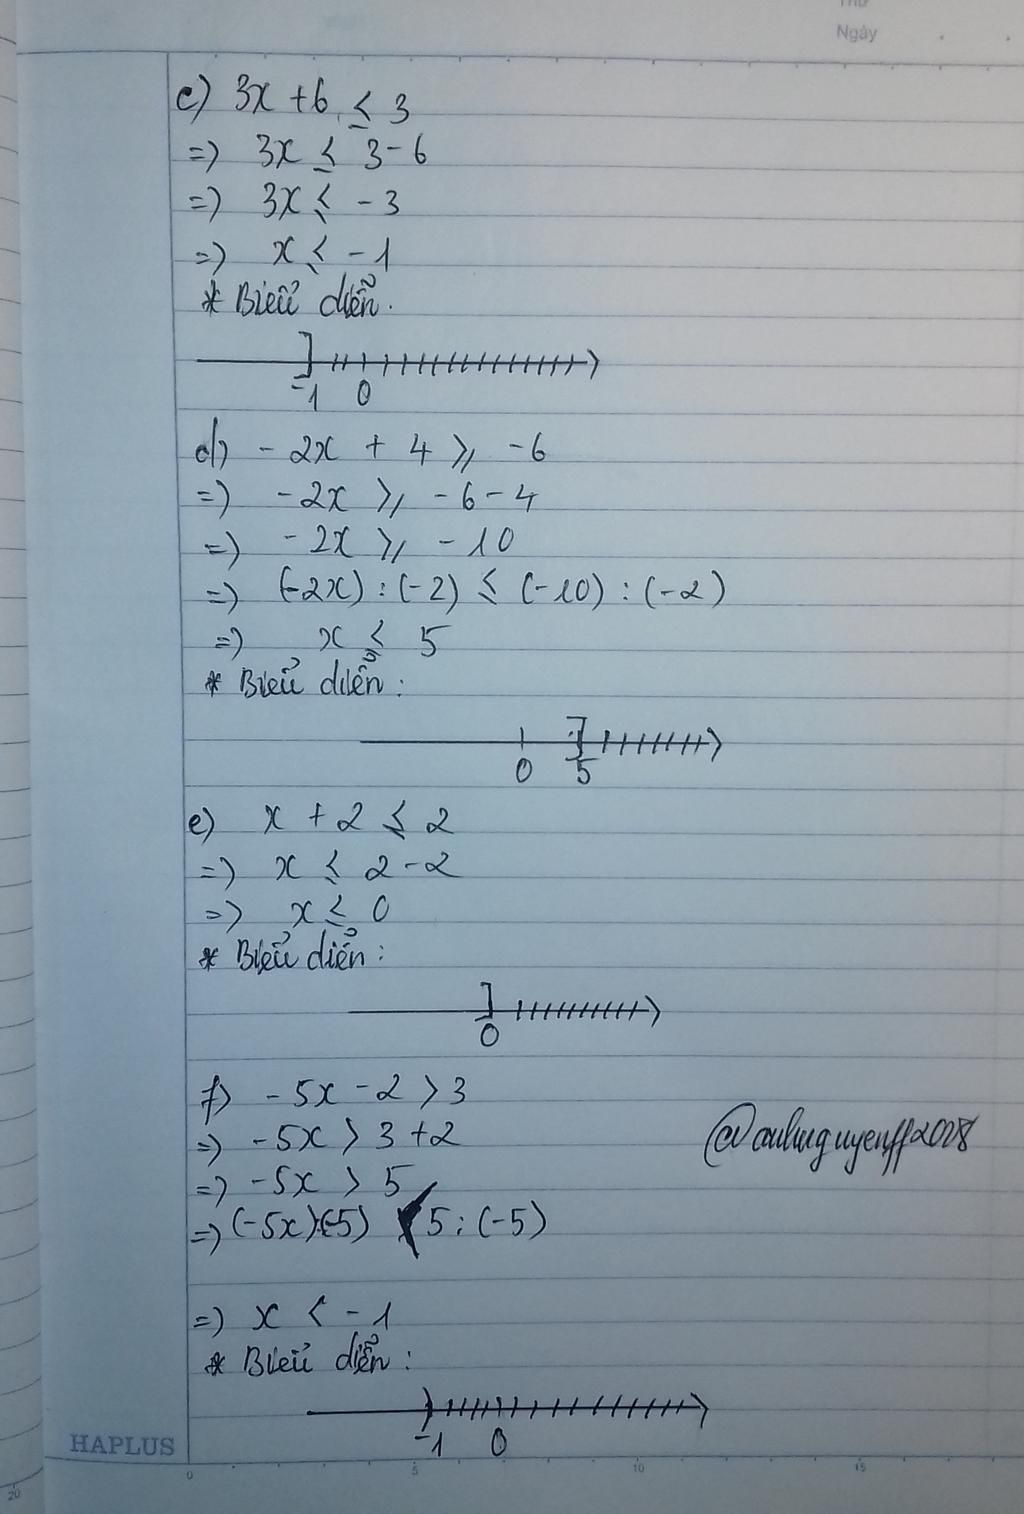 Thứ
Ngày
c) 3x + 6 ≤ 3
=> 3x ≤ 3 - 6
=> 3x ≤ -3
=> x ≤ -1
* Biểu diễn.
-1 0
d) -2x + 4 ≥ -6
=> -2x ≥ -6 - 4
=> -2x ≥ -10
=> (-2x) : (-2) ≤ (-10) : (-2)
=> x ≤ 5
* Biểu diễn :
0 5
e) x + 2 ≤ 2
=> x ≤ 2 - 2
=> x ≤ 0
* Biểu diễn :
0
f) -5x - 2 > 3
=> -5x > 3 + 2
=> -5x > 5
=> (-5x):(-5) < 5 : (-5)
=> x < -1
* Biểu diễn :
-1 0
HAPLUS
0 5 10 15
20